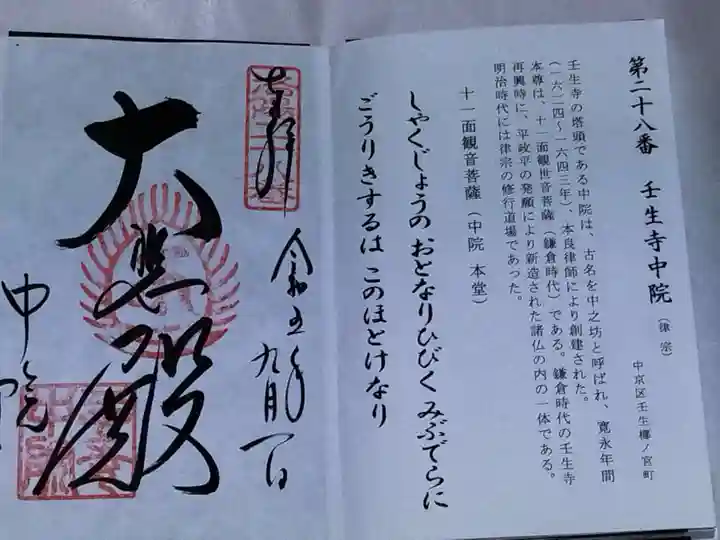 第二十八番 壬生寺中院（律宗）
中京区壬生梛ノ宮町
壬生寺の塔頭である中院は、古名を中之坊と呼ばれ、寛永年間
（一六二四～一六四三年）、本良律師により創建された。
本尊は、十一面観世音菩薩（鎌倉時代）である。鎌倉時代の壬生寺
再興時に、平政平の発願により新造された諸仏の内の一体である。
明治時代には律宗の修行道場であった。
十一面観音菩薩（中院 本堂）
しゃくじょうの おとなりひびく みぶでらに
ごうりきするは このほとけなり
奉拝
令和五年九月一日
大悲殿
中院